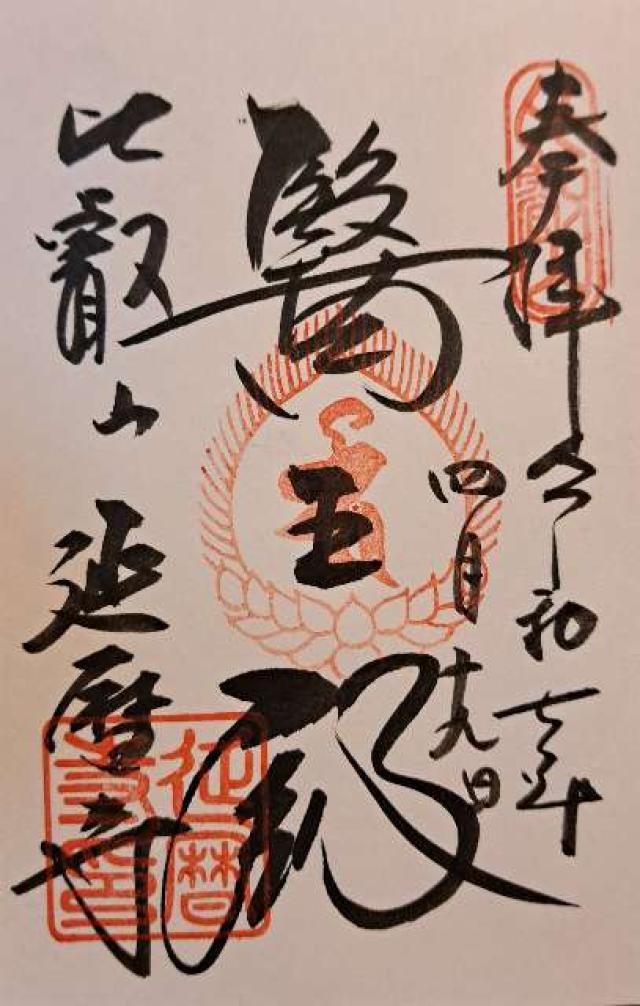 奉拝
令和七年
四月十九日
醫王殿
比叡山
延暦寺